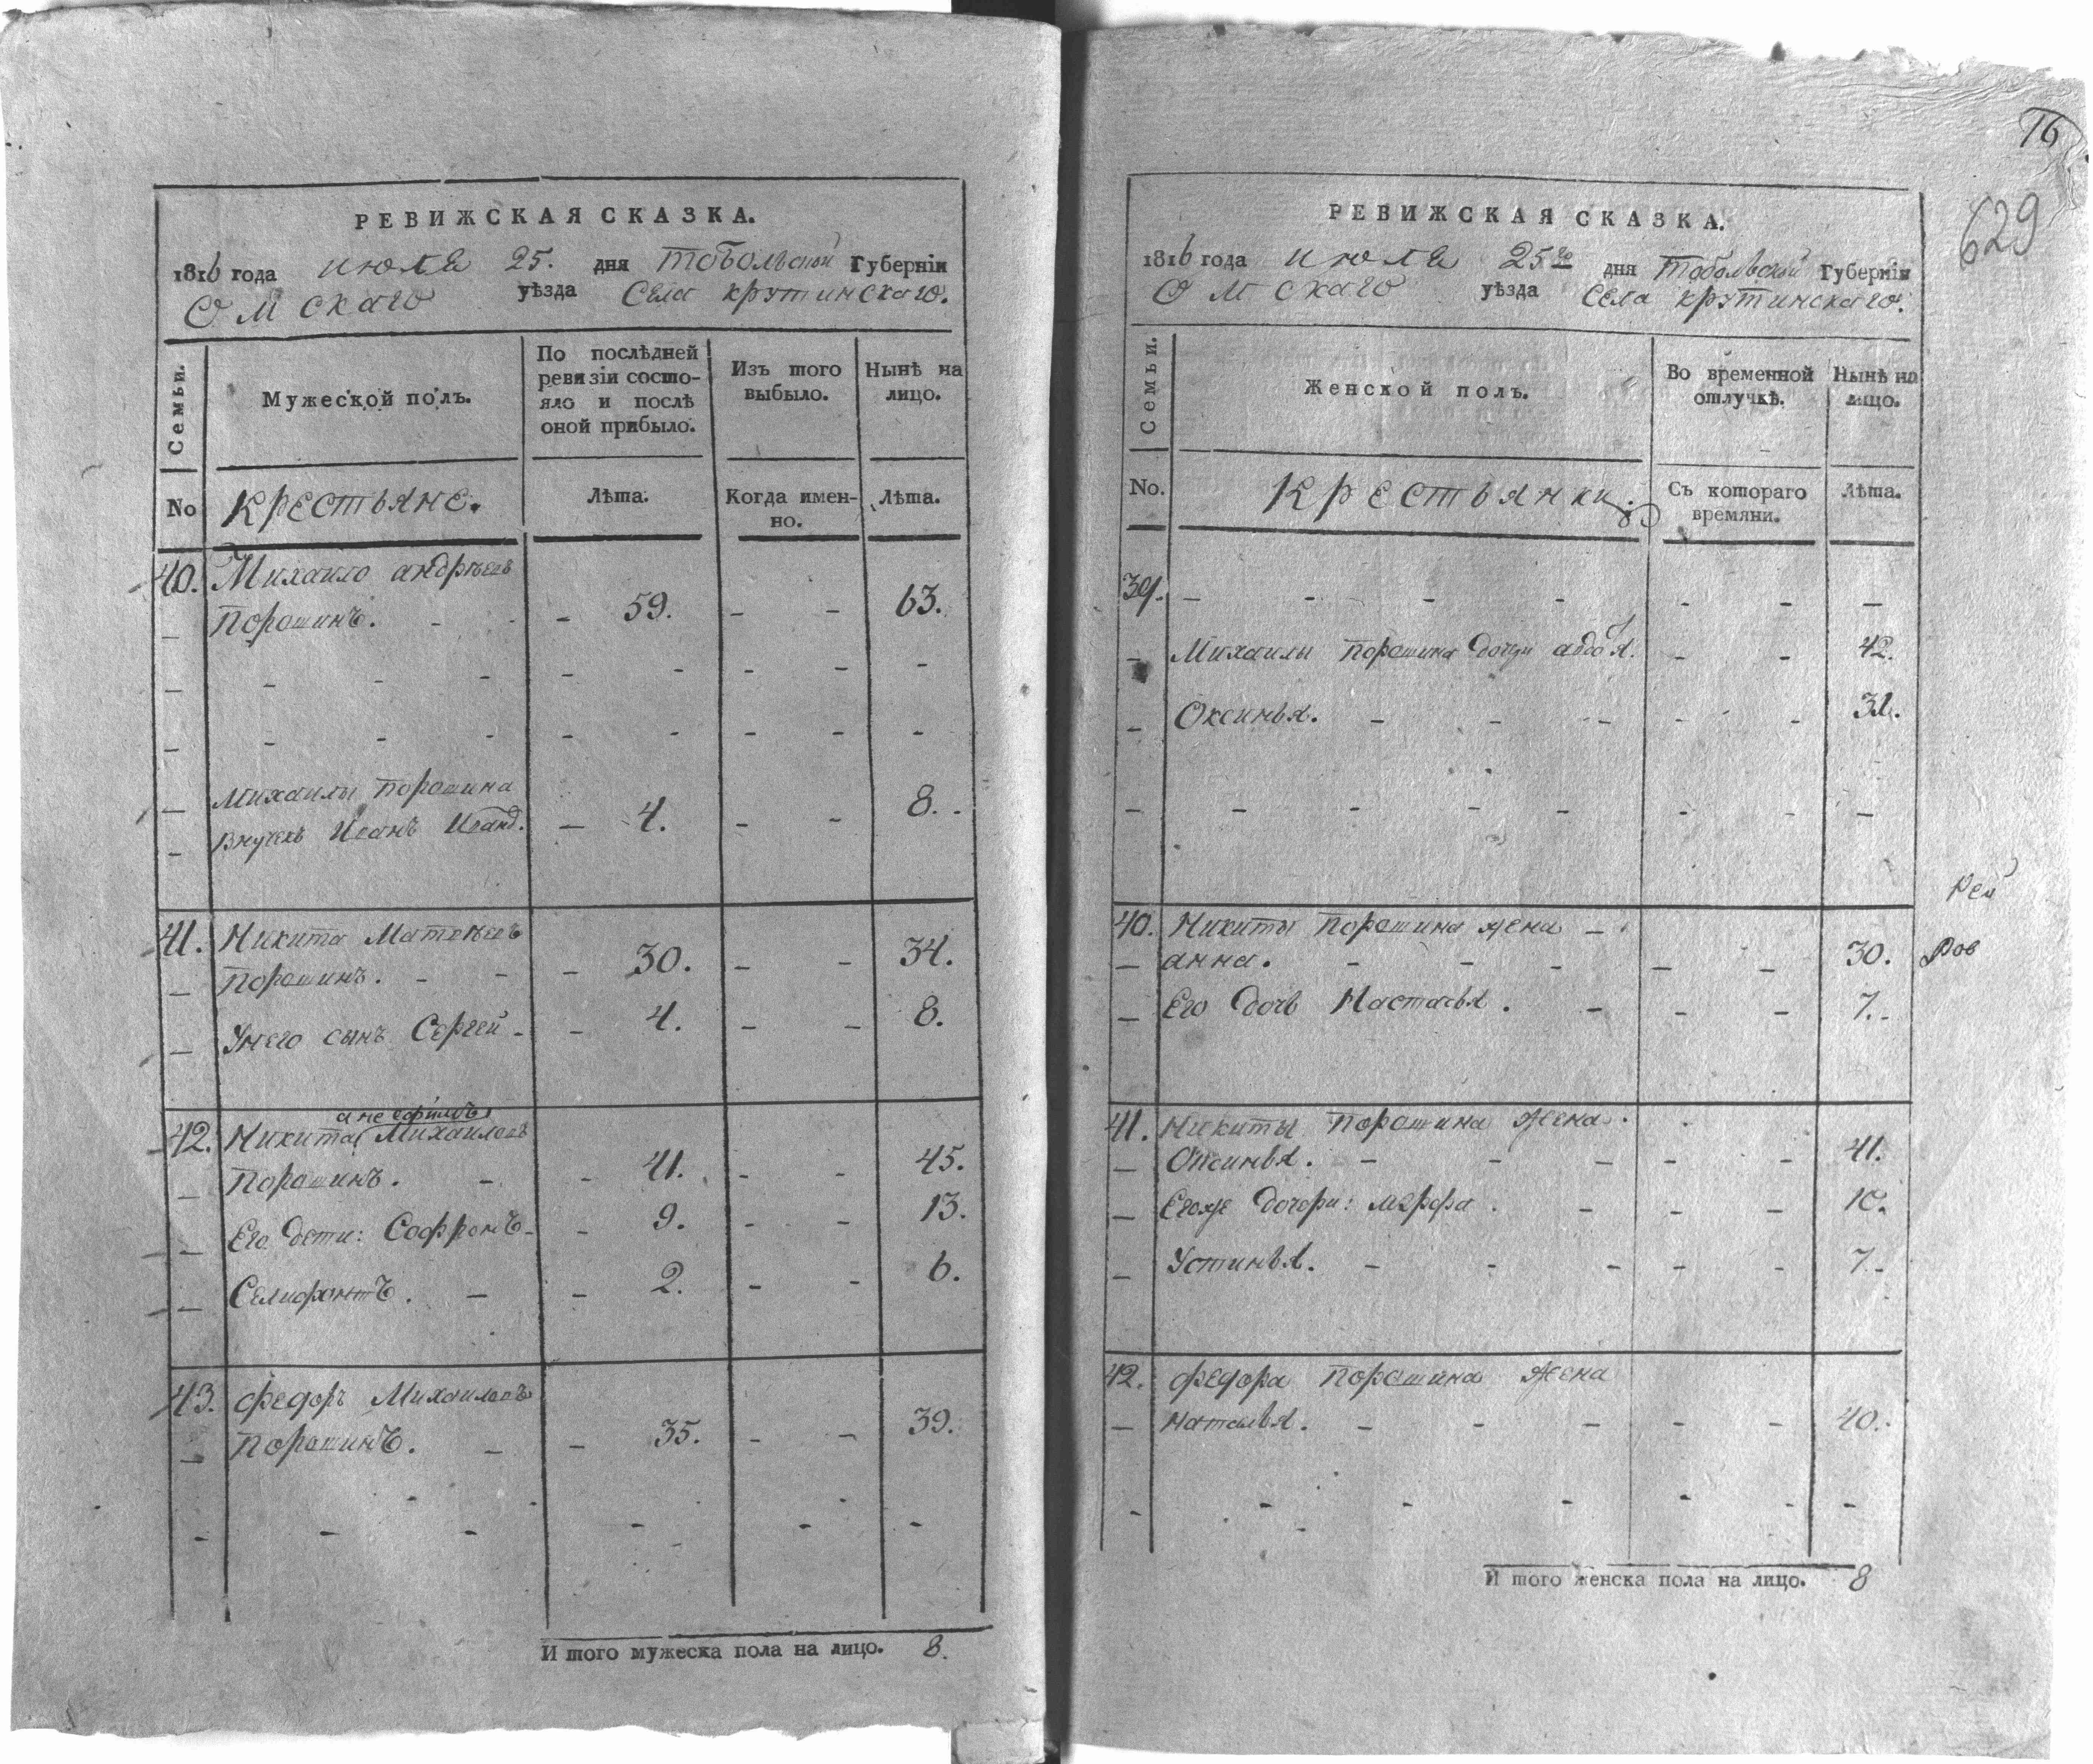 РЕВИЖСКАЯ СКАЗКА.
1816 года июля 25. дня Тобольской Губернїи
Омскаго уѣзда Села крутинскаго.
Семьи.
Мужеской полъ.
По послѣдней
ревизіи состо-
яло и послѣ
оной прибыло.
Изъ того
выбыло.
Нынѣ на
лицо.
No
крестьяне.
Лѣта.
Когда имен-
но.
Лѣта.
40. Михаило андрѣевъ
Порошинъ. - - - 59. - - 63.
Михаилы Порошина
внучекъ Иванъ Иванd. - 4. - - 8.
41. Никита Матвѣевъ
Порошинъ. - - - 30. - - 34.
Унего сынъ Сергей - - 4. - - 8.
42. Никита Михаиловъ
Порошинъ. - - 41. - - 45.
Его дети: Софронъ - - 9. - - 13.
Селифонтъ. - - 2. - - 6.
43. федоръ Михаиловъ
Порошинъ. - - 35. - - 39.
И того мужеска пола на лицо. 8.
76
629
РЕВИЖСКАЯ СКАЗКА.
1816 года июля 25го дня Тобольской Губернїи
Омскаго уѣзда Села крутинскаго.
Семьи.
Женской полъ.
Во временной
отлучкѣ.
Нынѣ на
лицо.
No.
крестьянки.
Съ котораго
времяни.
Лѣта.
39. - - - - - - -
Михаилы Порошина дочери - - 42.
Оксинья. - - - - - 31.
Рей
40. Никиты Порошина жена -
анна. - - - - - 30.
Ров
Его дочь Настасья. - - - 7.
41. Никиты Порошина жена.
Оксинья. - - - - - 41.
Егоже дочери: марфа. - - - 10.
Устинья. - - - - - 7.
42. федора Порошина жена
наталья. - - - - - 40.
И того женска пола на лицо. 8